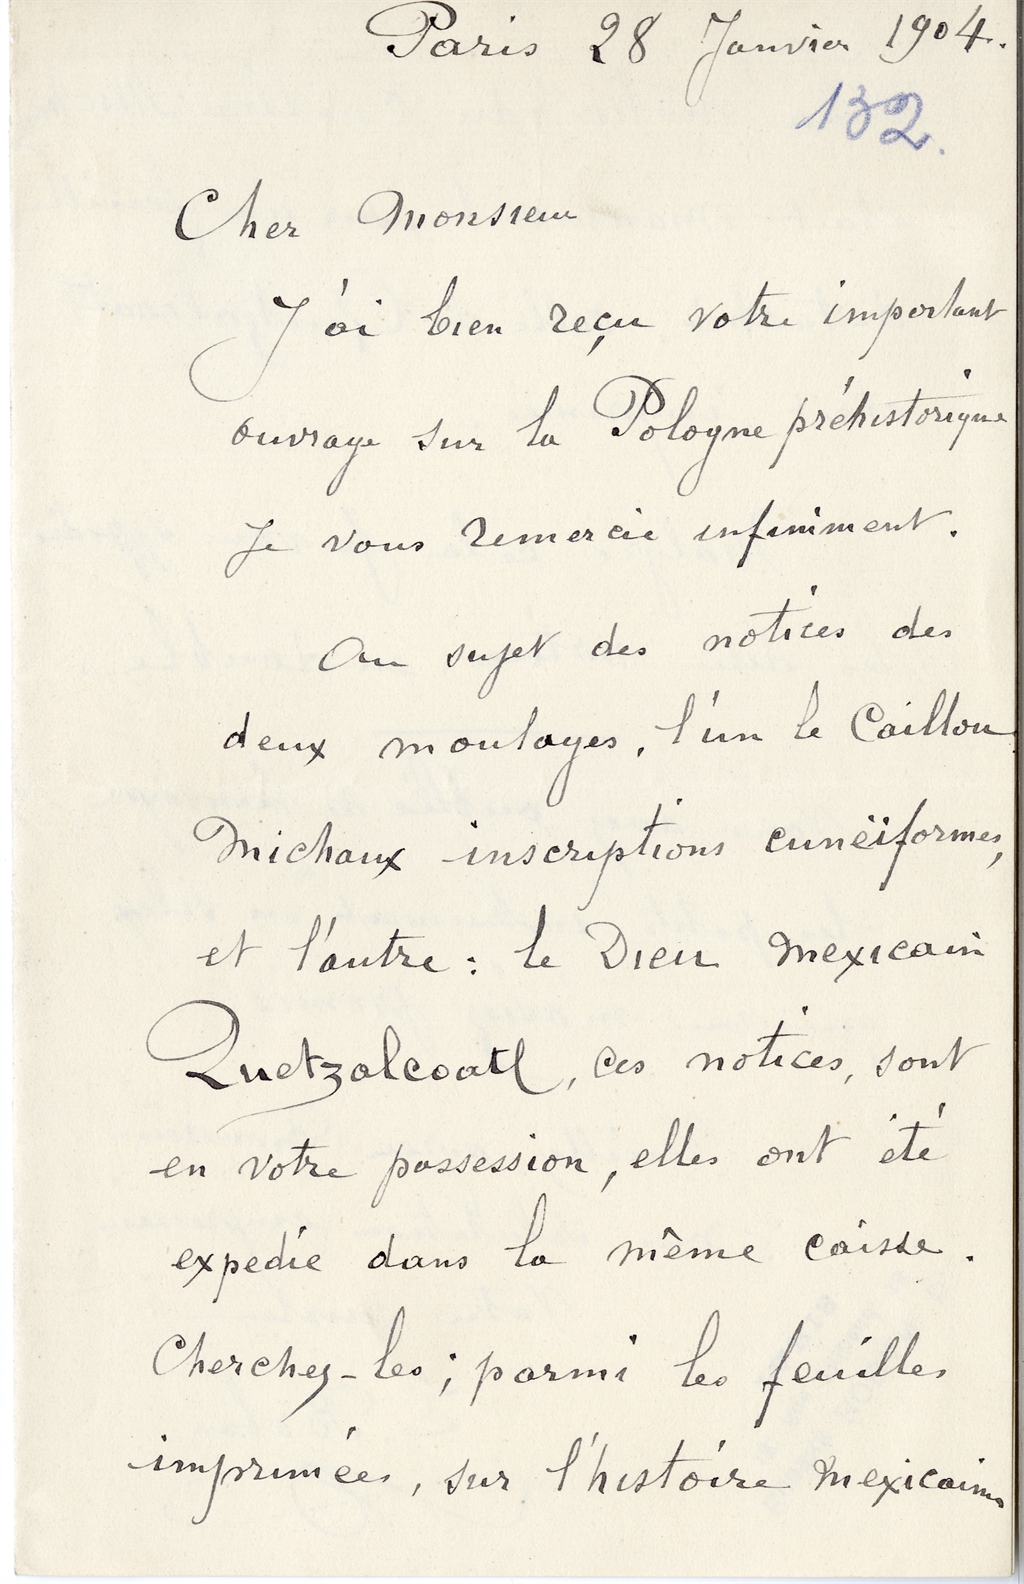 Paris 28 Janvier 1904.
132.
Cher Monsieur
J'ai bien reçu votre important
ouvrage sur la Pologne préhistorique
Je vous remercie infiniment.
Au sujet des notices des
deux moulages, l'un le Caillou
Michaux inscriptions cunéiformes,
et l'autre : le Dieu Mexicain
Quetzalcoatl, ces notices, sont
en votre possession, elles ont été
expedié dans la même caisse.
Cherchez-les ; parmi les feuilles
imprimées, sur l'histoire Mexicaine